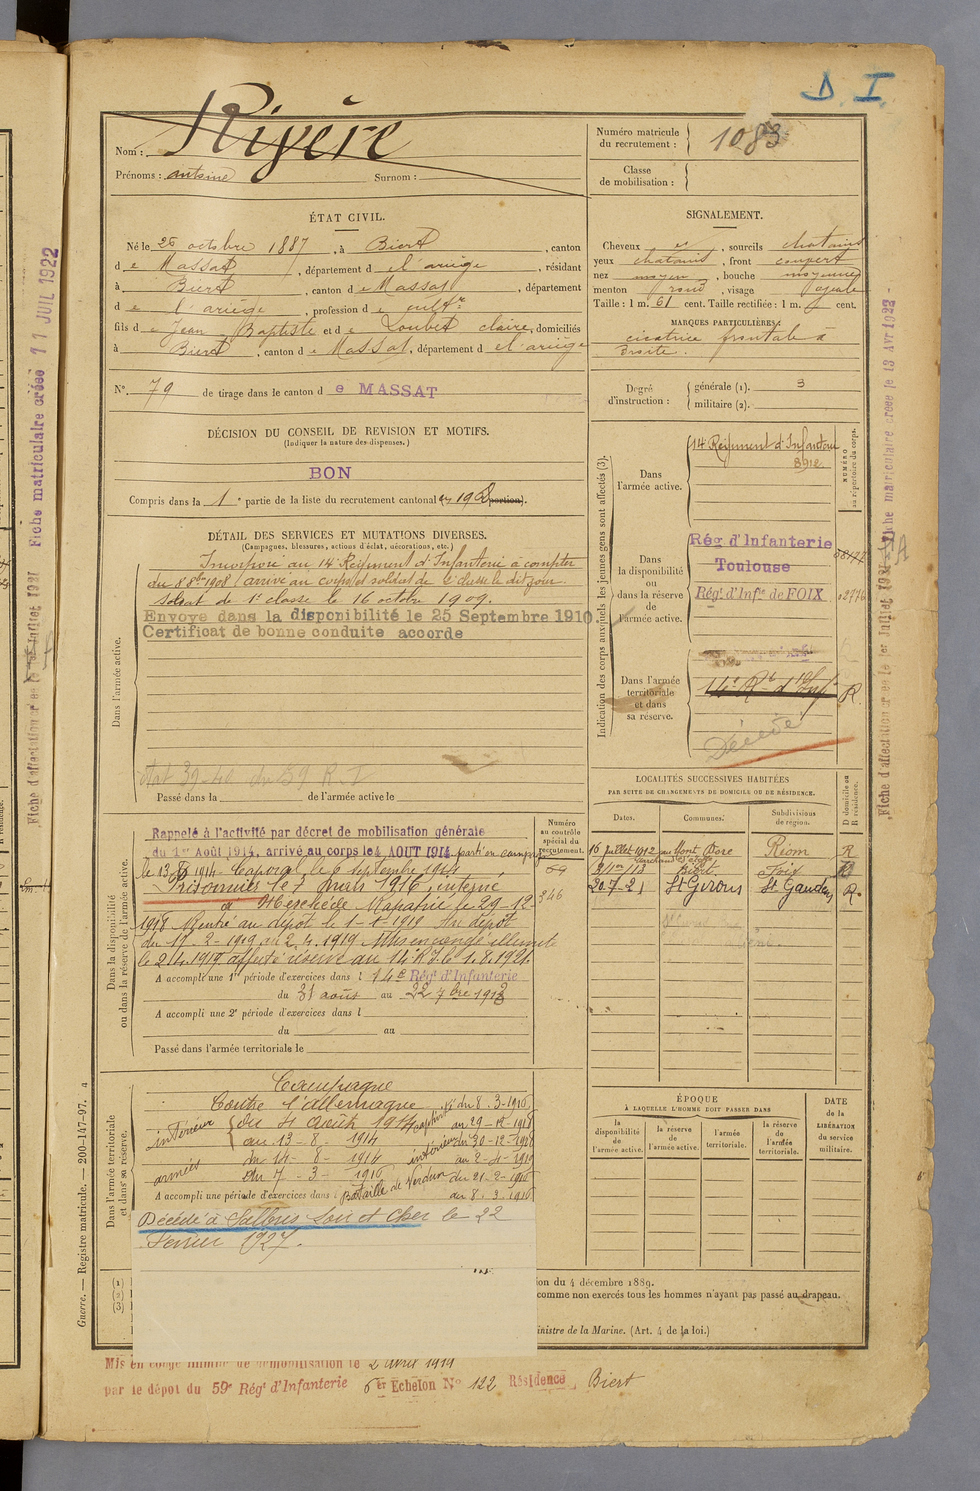 D. I.
Rivère
Nom :
Prénoms : antoine Surnom :
Numéro matricule du recrutement : 1083
Classe de mobilisation :
ÉTAT CIVIL.
Né le 26 octobre 1887, à Biert, canton
de Massat, département de l'ariège, résidant
à Biert, canton de Massat, département
de l'ariège, profession de cultr
fils de Jean Baptiste et de Loubet claire, domiciliés
à Biert, canton de Massat, département de l'ariège
N° 79 de tirage dans le canton de MASSAT
DÉCISION DU CONSEIL DE REVISION ET MOTIFS.
(Indiquer la nature des dispenses.)
BON
Compris dans la 1e partie de la liste du recrutement cantonal ( portion).
SIGNALEMENT.
Cheveux , sourcils chatains
yeux chatains, front couvert
nez moyen, bouche moyenne
menton rond, visage ovale
Taille : 1 m. 61 cent. Taille rectifiée : 1 m. cent.
MARQUES PARTICULIÈRES :
cicatrice frontale à
droite.
Degré d'instruction :
générale (1). 3
militaire (2).
DÉTAIL DES SERVICES ET MUTATIONS DIVERSES.
(Campagnes, blessures, actions d'éclat, décorations, etc.)
Dans l'armée active.
Incorporé au 14e Régiment d'Infanterie à compter
du 8 8bre 1908, arrivé au corps et soldat de 2e classe le dit jour.
Soldat de 1e classe le 16 octobre 1909.
Envoyé dans la disponibilité le 25 Septembre 1910.
Certificat de bonne conduite accordé
Passé dans la de l'armée active le
Indication des corps auxquels les jeunes gens sont affectés (3).
NUMÉRO au répertoire du corps.
Dans l'armée active.
14 Régiment d'Infanterie
8912
Dans la disponibilité ou dans la réserve de l'armée active.
Rég d'Infanterie
Toulouse
Régt d'Infie de FOIX
02776
Dans l'armée territoriale et dans sa réserve.
14e Rt d'Inf
R.
Décédé
LOCALITÉS SUCCESSIVES HABITÉES
PAR SUITE DE CHANGEMENTS DE DOMICILE OU DE RÉSIDENCE.
Dates. Communes. Subdivisions de région. D domicile ou R résidence.
16 juillet 1912 Mont Dore Riom R
Biert Foix
20.7.21 St Girons St Gaudens R.
Dans la disponibilité ou dans la réserve de l'armée active.
Numéro au contrôle spécial du recrutement.
346
Rappelé à l'activité par décret de mobilisation générale
du 1er Août 1914, arrivé au corps le 4 AOUT 1914 parti en campagne
le 13 8 1914. Caporal le 6 septembre 1914
Prisonnier le 7 mars 1916, interné
à Merchede Rapatrié le 29-12-
1918 Rentré au dépôt le 1-1-1919
du 17-2-1919 au 2.4.1919 Mis en congé illimité
le 2.4.1919 affecté réserve au 14e R.I. le 1.8.1921
A accompli une 1re période d'exercices dans l 14e Régt d'Infanterie
du 31 août au 22 7bre 1913
A accompli une 2e période d'exercices dans l
du au
Passé dans l'armée territoriale le
Dans l'armée territoriale et dans sa réserve.
Campagne
Contre l'allemagne
intérieur du 4 août 1914
au 13-8-1914
armées du 14-8-1914
au 7-3-1916
captivité du 8.3-1916
au 29-12-1918
intérieur du 30-12-1918
au 2-4-1919
Bataille de Verdun du 21-2-1916
au 8.3.1916
A accompli une période d'exercices dans l
Décédé à Salbris Loir et Cher le 22
Février 1927.
ÉPOQUE
À LAQUELLE L'HOMME DOIT PASSER DANS
la disponibilité de l'armée active.
la réserve de l'armée active.
l'armée territoriale.
la réserve de l'armée territoriale.
DATE de la LIBÉRATION du service militaire.
(1)
(2)
(3)
ion du 4 décembre 1889.
comme non exercés tous les hommes n'ayant pas passé au drapeau.
inistre de la Marine. (Art. 4 de la loi.)
Mis en congé illimité de démobilisation le 2 avril 1919
par le dépot du 59e Régt d'Infanterie 6er Echelon N° 122 Résidence Biert
Guerre. — Registre matricule. — 200-147-97. a
Fiche matriculaire créée 11 JUIL 1922
Fiche d'affectation créée le 1er Juillet 1921
Fiche matriculaire créée le 13 Avr 1922
Fiche d'affectation créée le 1er Juillet 1921